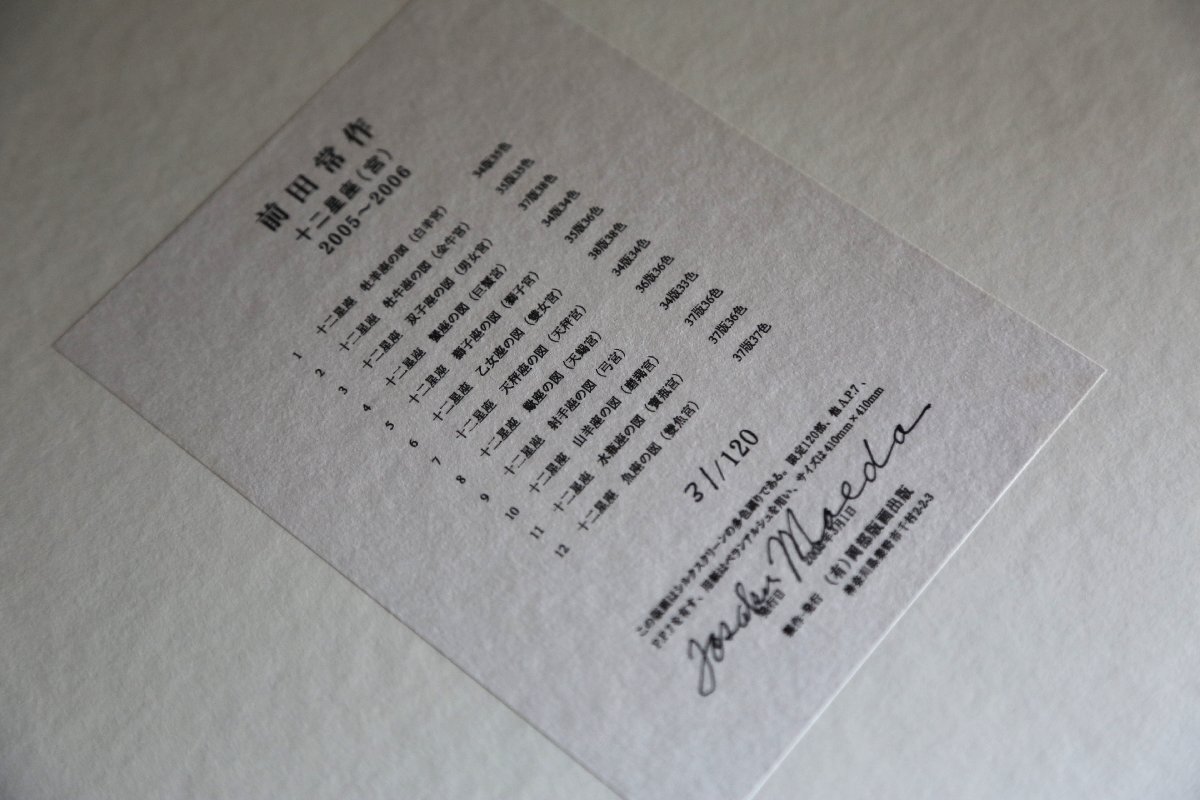 前田常作
十二星座(宮)
2005～2006
1 十二星座 牡羊座の図(白羊宮) 34版35色
2 十二星座 牡牛座の図(金牛宮) 35版35色
3 十二星座 双子座の図(男女宮) 37版38色
4 十二星座 蟹座の図(巨蟹宮) 34版34色
5 十二星座 獅子座の図(獅子宮) 35版36色
6 十二星座 乙女座の図(雙女宮) 38版38色
7 十二星座 天秤座の図(天秤宮) 34版34色
8 十二星座 蠍座の図(天蝎宮) 36版36色
9 十二星座 射手座の図(弓宮) 34版33色
10 十二星座 山羊座の図(磨羯宮) 37版36色
11 十二星座 水瓶座の図(寶瓶宮) 37版36色
12 十二星座 魚座の図(雙魚宮) 37版37色
31/120
この版画はシルクスクリーンの多色摺りである。限定120部、他A.P.7、
P.P.7を有す、用紙はベランアルシュを用い、サイズは410mm×410mm
Josaku Maeda
発行日 月1日
製作・発行 (有)岡部版画出版
神奈川県秦野市千村2-2-3